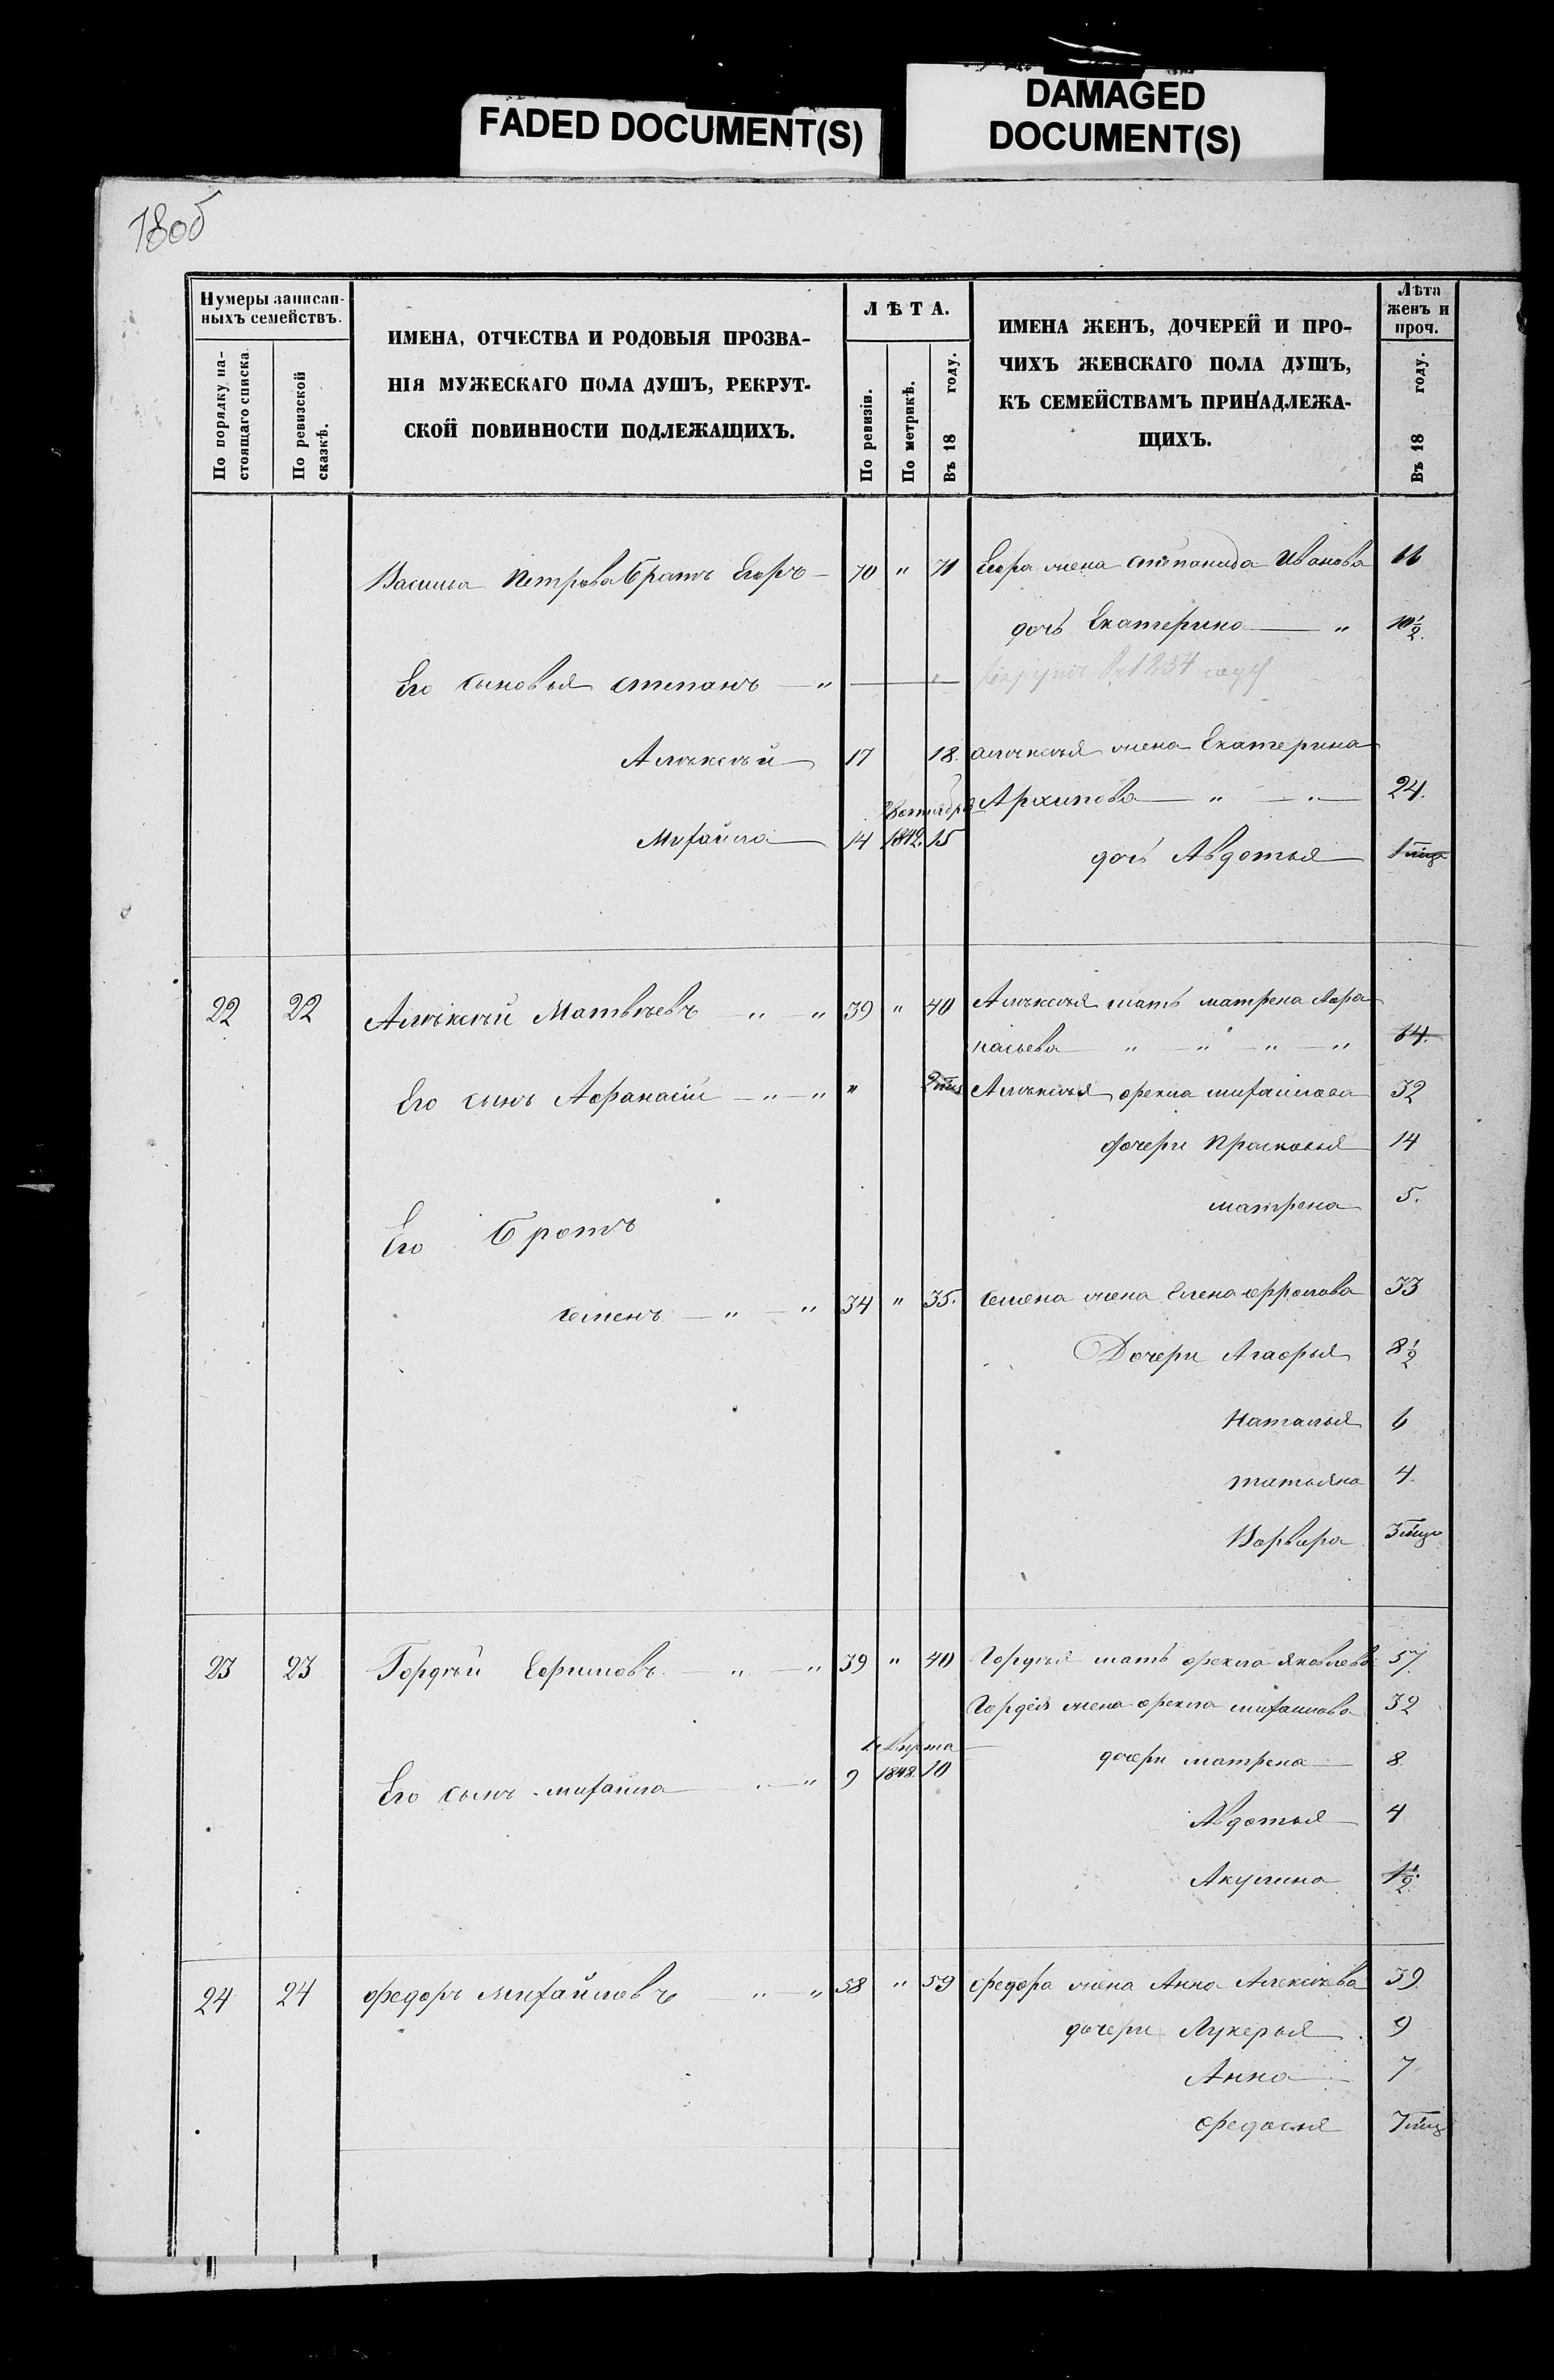 FADED DOCUMENT(S)
DAMAGED
DOCUMENT(S)
18об
Нумеры записан-
ныхъ семействъ.
По порядку на-
стоящаго списка.
По ревизской
сказкѣ.
ИМЕНА, ОТЧЕСТВА И РОДОВЫЯ ПРОЗВА-
НІЯ МУЖЕСКАГО ПОЛА ДУШЪ, РЕКРУТ-
СКОЙ ПОВИННОСТИ ПОДЛЕЖАЩИХЪ.
ЛѢТА.
По ревизіи.
По метрикѣ.
Въ 18 году.
ИМЕНА ЖЕНЪ, ДОЧЕРЕЙ И ПРО-
ЧИХЪ ЖЕНСКАГО ПОЛА ДУШЪ,
КЪ СЕМЕЙСТВАМЪ ПРИНАДЛЕЖА-
ЩИХЪ.
Лѣта
женъ и
проч.
Въ 18 году.
Василія Петрова братъ Егоръ — 70 " 71 Егора жена степанида Иванова 66
дочь Екатерина — " 10 1/2
Его сыновья степанъ — "
Алѣксѣй 17 18. алѣксѣя жена Екатерина
Архипова — " — " — 24.
Михайла 14 1842. 15
дочь Авдотья
22 22 Алѣксѣй Матвѣевъ — " — " 39 " 40 Алѣксѣя мать матрена Афа
насьева " — " — " — " 64.
Его сынъ Афанасій — " — " " Алѣксѣя фекла михайлова 32
дочери Прасковья 14
матрена 5.
Его братъ
семенъ — " — " 34 " 35. семена жена Елена ефремова 33
Дочери Агафья 8 1/2
Наталья 6
татьяна 4.
Варвара 3 мца
23 23 Гордѣй Ефимовъ — " — " 39 " 40 Гордѣя мать фекла яковлева 57.
Гордѣя жена фекла михайлова 32
Его сынъ михайла — " 9 1848. 10
дочери матрена 8.
Авдотья 4
Акулина 1 1/2.
24 24 федоръ михайловъ " — " 58 " 59 федора жена Анна Алексѣева 39.
дочери Лукерья 9
Анна 7
федосья 7 мц